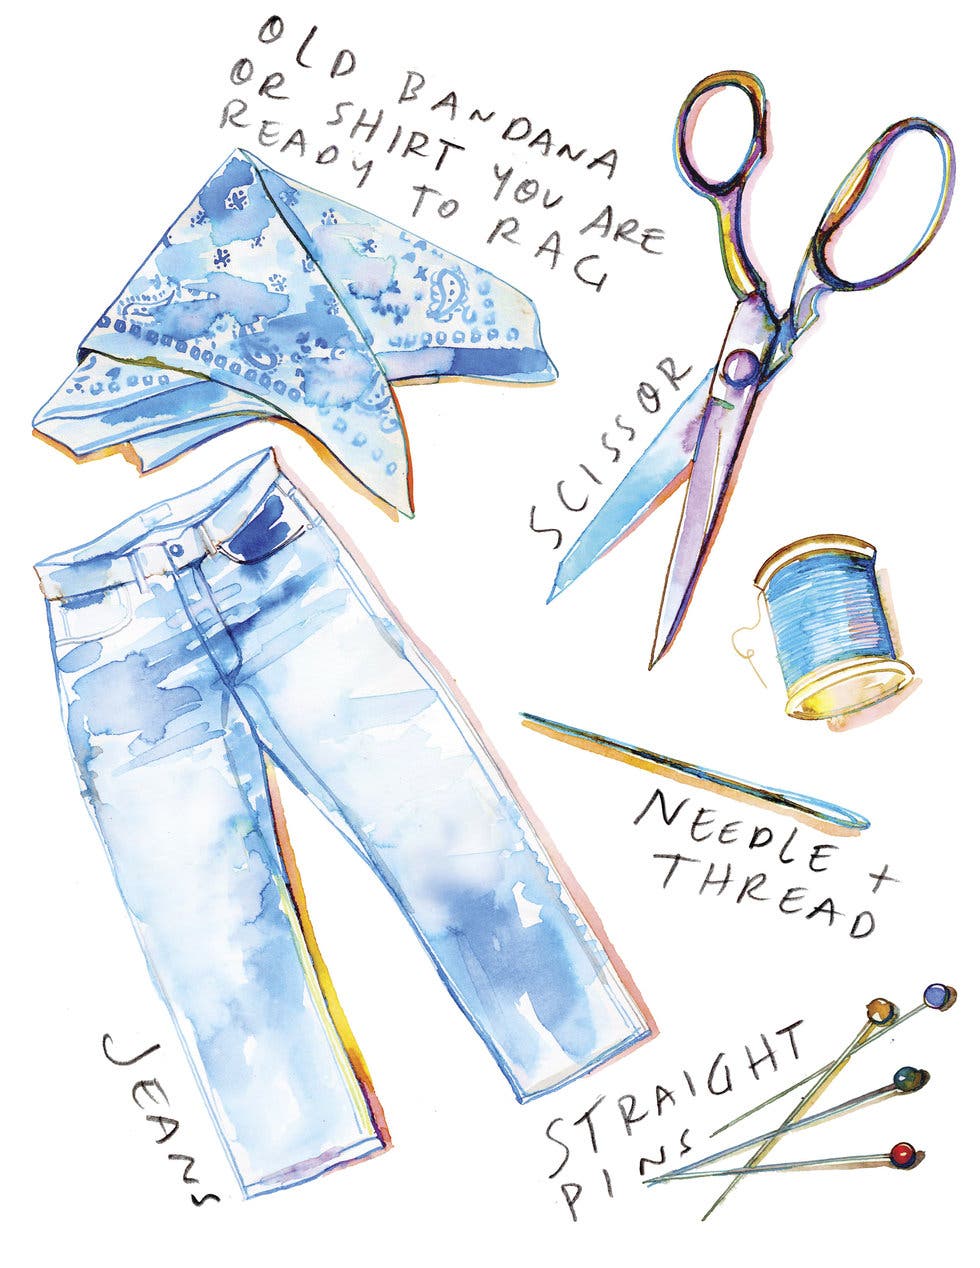 OLD BANDANA
OR SHIRT YOU ARE
READY TO RAG
SCISSOR
NEEDLE +
THREAD
JEANS
STRAIGHT
PINS